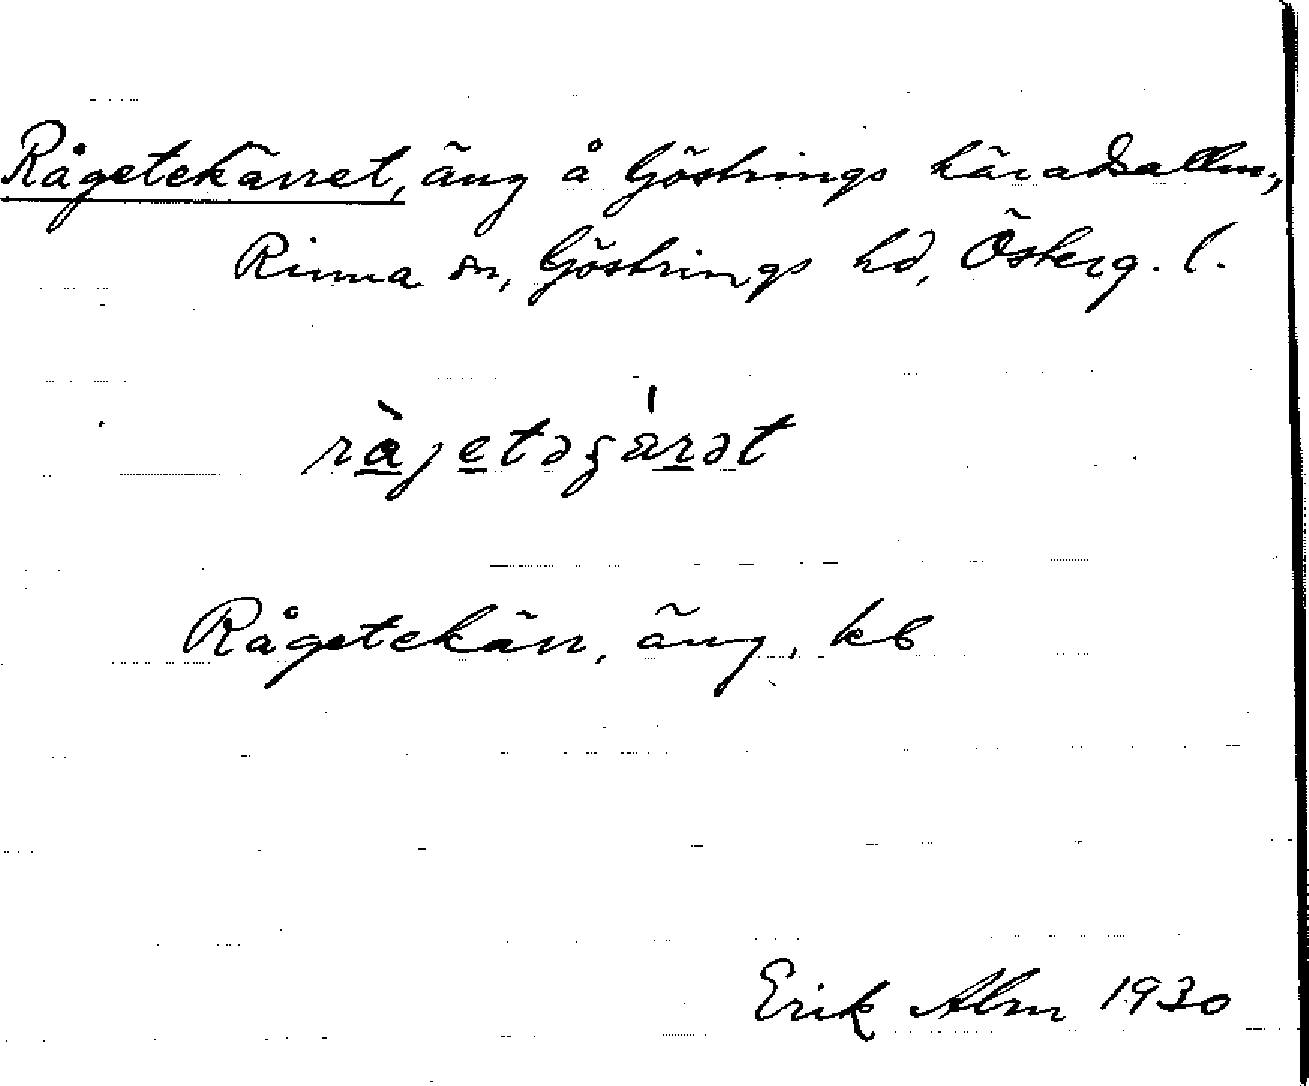 Rågetekärret, äng å Göstrings häradsallm.,
Rinna sn, Göstrings hd, Österg. l.
Rågetekärr, äng, kb
Erik Alm 1930